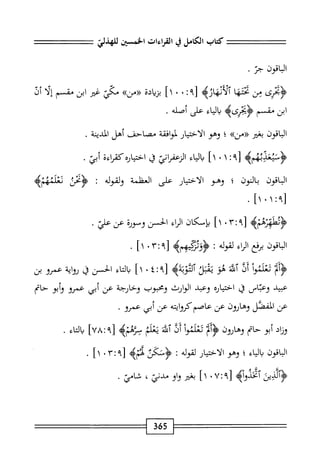 كتاب الكامل في القراءات الخمسين للهذليّ
الباقون جرّ .
﴿تَجْرِي مِن تَحْتِهَا ٱلْأَنْهَارُ﴾ [١٠٠:٩] بزيادة «من» مكّيّ غير ابن مقسم إلّا أنّ
ابن مقسم ﴿يَجْرِي﴾ بالياء على أصله .
الباقون بغير «من» ؛ وهو الاختيار لموافقة مصاحف أهل المدينة .
﴿سَيُعَذِّبُهُم﴾ [١٠١:٩] بالياء الزعفرانيّ في اختياره كقراءة أبيّ .
الباقون بالنون ؛ وهو الاختيار على العظمة ولقوله : ﴿نَحْنُ نَعْلَمُهُمْ﴾
[١٠١:٩] .
﴿تُطَهِّرْهُمْ﴾ [١٠٣:٩] بإسكان الراء الحسن وسورة عن عليّ .
الباقون برفع الراء لقوله : ﴿وَتُزَكِّيهِم﴾ [١٠٣:٩] .
﴿أَلَمْ تَعْلَمُوٓا۟ أَنَّ ٱللَّهَ هُوَ يَقْبَلُ ٱلتَّوْبَةَ﴾ [١٠٤:٩] بالتاء الحسن في رواية عمرو بن
عبيد وعبّاس في اختياره وعبد الوارث ومحبوب وخارجة عن أبي عمرو وأبو حاتم
عن المفضّل وهارون عن عاصم كروايته عن أبي عمرو .
وزاد أبو حاتم وهارون ﴿أَلَمْ تَعْلَمُوٓا۟ أَنَّ ٱللَّهَ يَعْلَمُ سِرَّهُمْ﴾ [٧٨:٩] بالتاء .
الباقون بالياء ؛ وهو الاختيار لقوله : ﴿سَكَنٌ لَّهُمْ﴾ [١٠٣:٩] .
﴿ٱلَّذِينَ ٱتَّخَذُوا۟﴾ [١٠٧:٩] بغير واو مدنيّ ، شاميّ .
365